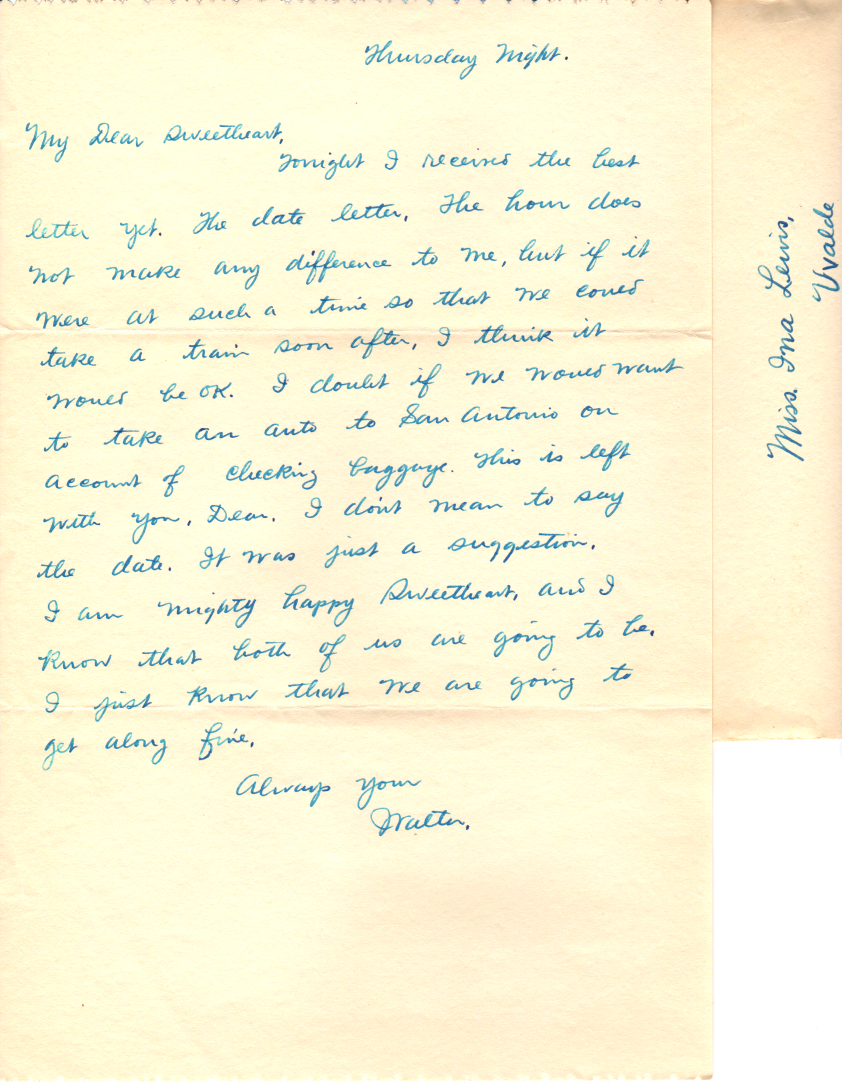 Thursday Night.
My Dear Sweetheart,
Tonight I received the best
letter yet. The date letter. The hour does
not make any difference to me, but if it
were at such a time so that we could
take a train soon after, I think it
would be OK. I doubt if we would want
to take an auto to San Antonio on
account of checking baggage. This is left
with you, Dear. I don't mean to say
the date. It was just a suggestion.
I am mighty happy Sweetheart, and I
know that both of us are going to be.
I just know that we are going to
get along fine.
Always your
Walter.
Miss. Ina Lewis,
Uvalde